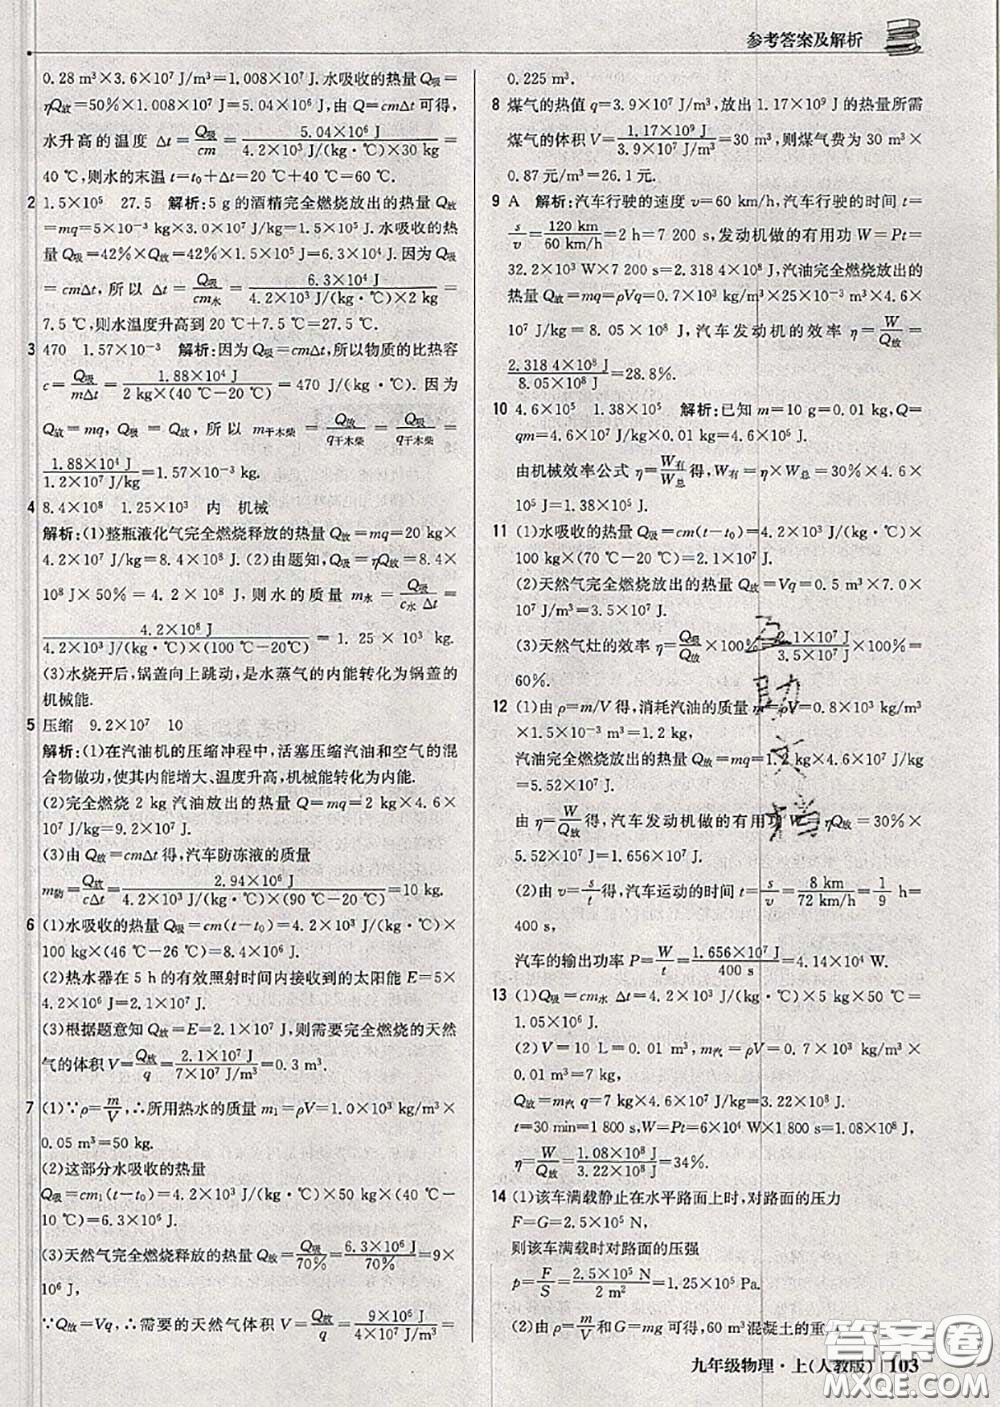 参考答案及解析
0.28 m³×3.6×10⁶ J/m³=1.008×10⁷ J.水吸收的热量 Q吸=
ηQ放=50%×1.008×10⁷ J=5.04×10⁶ J,由 Q=cmΔt 可得,
水升高的温度 Δt=Q吸/cm=5.04×10⁶ J/4.2×10³ J/(kg·℃)×30 kg=
40 ℃,则水的末温 t=t₀+Δt=20 ℃+40 ℃=60 ℃.
2 1.5×10⁵ 27.5 解析:5 g的酒精完全燃烧放出的热量 Q放
=mq=5×10⁻³ kg×3.0×10⁷ J/kg=1.5×10⁵ J.水吸收的热
量 Q吸=42%×Q放=42%×1.5×10⁵ J=6.3×10⁴ J.因为 Q吸
=cmΔt,所以 Δt=Q吸/cm水=6.3×10⁴ J/4.2×10³ J/(kg·℃)×2 kg=
7.5 ℃,则水温度升高到 20 ℃+7.5 ℃=27.5 ℃.
3 470 1.57×10⁻³ 解析:因为 Q吸=cmΔt,所以物质的比热容
c=Q吸/mΔt=1.88×10⁴ J/2 kg×(40 ℃-20 ℃)=470 J/(kg·℃).因为
Q放=mq,Q吸=Q放,所以 m干木柴=Q放/q干木柴=Q吸/q干木柴=
1.88×10⁴ J/1.2×10⁷ J/kg=1.57×10⁻³ kg.
4 8.4×10⁸ 1.25×10³ 内 机械
解析:(1)整瓶液化气完全燃烧释放的热量 Q放=mq=20 kg×
4.2×10⁷ J/kg=8.4×10⁸ J.(2)由题知,Q吸=ηQ放=8.4×
10⁸ J×50%=4.2×10⁸ J,则水的质量 m水=Q吸/c水Δt=
4.2×10⁸ J/4.2×10³ J/(kg·℃)×(100 ℃-20℃)=1.25×10³ kg.
(3)水烧开后,锅盖向上跳动,是水蒸气的内能转化为锅盖的
机械能.
5 压缩 9.2×10⁷ 10
解析:(1)在汽油机的压缩冲程中,活塞压缩汽油和空气的混
合物做功,使其内能增大、温度升高,机械能转化为内能.
(2)完全燃烧 2 kg 汽油放出的热量 Q=mq=2 kg×4.6×
10⁷ J/kg=9.2×10⁷ J.
(3)由 Q放=cmΔt得,汽车防冻液的质量
m防=Q放/cΔt=2.94×10⁶ J/4.2×10³ J/(kg·℃)×(90 ℃-20 ℃)=10 kg.
6 (1)水吸收的热量 Q吸=cm(t-t₀)=4.2×10³ J/(kg·℃)×
100 kg×(46 ℃-26 ℃)=8.4×10⁶ J.
(2)热水器在 5 h的有效照射时间内接收到的太阳能 E=5×
4.2×10⁶ J=2.1×10⁷ J.
(3)根据题意知 Q放=E=2.1×10⁷ J,则需要完全燃烧的天然
气的体积 V=Q放/q=2.1×10⁷ J/7×10⁷ J/m³=0.3 m³.
7 (1)∵ρ=m/V,∴所用热水的质量 m₁=ρV=1.0×10³ kg/m³×
0.05 m³=50 kg.
(2)这部分水吸收的热量
Q吸=cm₁(t-t₀)=4.2×10³ J/(kg·℃)×50 kg×(40 ℃-
10 ℃)=6.3×10⁶ J.
(3)天然气完全燃烧释放的热量 Q放=Q吸/70%=6.3×10⁶ J/70%=9×
10⁶ J.
∵Q放=Vq,∴需要的天然气体积 V=Q放/q=9×10⁶ J/4×10⁷ J/m³=
0.225 m³.
8 煤气的热值 q=3.9×10⁷ J/m³,放出 1.17×10⁹ J的热量所需
煤气的体积 V=1.17×10⁹ J/3.9×10⁷ J/m³=30 m³,则煤气费为 30 m³×
0.87 元/m³=26.1 元.
9 A 解析:汽车行驶的速度 v=60 km/h,汽车行驶的时间 t=
s/v=120 km/60 km/h=2 h=7 200 s,发动机做的有用功 W=Pt=
32.2×10³ W×7 200 s=2.318 4×10⁸ J,汽油完全燃烧放出的
热量 Q放=mq=ρVq=0.7×10³ kg/m³×25×10⁻³ m³×4.6×
10⁷ J/kg=8.05×10⁸ J,汽车发动机的效率 η=W/Q放=
2.318 4×10⁸ J/8.05×10⁸ J=28.8%.
10 4.6×10⁵ 1.38×10⁵ 解析:已知 m=10 g=0.01 kg,Q=
qm=4.6×10⁷ J/kg×0.01 kg=4.6×10⁵ J.
由机械效率公式 η=W有/W总得,W有=η×W总=30%×4.6×
10⁵ J=1.38×10⁵ J.
11 (1)水吸收的热量 Q吸=cm(t-t₀)=4.2×10³ J/(kg·℃)×
100 kg×(70 ℃-20 ℃)=2.1×10⁷ J.
(2)天然气完全燃烧放出的热量 Q放=Vq=0.5 m³×7.0×
10⁷ J/m³=3.5×10⁷ J.
(3)天然气灶的效率 η=Q吸/Q放×100%=2.1×10⁷ J/3.5×10⁷ J×100%=
60%.
12 (1)由 ρ=m/V得,消耗汽油的质量 m=ρV=0.8×10³ kg/m³
×1.5×10⁻³ m³=1.2 kg,
汽油完全燃烧放出的热量 Q放=mq=1.2 kg×4.6×10⁷ J/kg
=5.52×10⁷ J.
由 η=W/Q放得,汽车发动机做的有用功 W=ηQ放=30%×
5.52×10⁷ J=1.656×10⁷ J.
(2)由 v=s/t得,汽车运动的时间 t=s/v=8 km/72 km/h=1/9 h=
400 s,
汽车的输出功率 P=W/t=1.656×10⁷ J/400 s=4.14×10⁴ W.
13 (1)Q吸=cm水Δt=4.2×10³ J/(kg·℃)×5 kg×50 ℃=
1.05×10⁶ J.
(2)V=10 L=0.01 m³,m汽=ρV=0.7×10³ kg/m³×
0.01 m³=7 kg,
Q放=m汽q=7 kg×4.6×10⁷ J/kg=3.22×10⁸ J.
t=30 min=1 800 s,W=Pt=6×10⁴ W×1 800 s=1.08×10⁸ J,
η=W/Q放=1.08×10⁸ J/3.22×10⁸ J=34%.
14 (1)该车满载静止在水平路面上时,对路面的压力
F=G=2.5×10⁵ N,
则该车满载时对路面的压强
p=F/S=2.5×10⁵ N/2 m²=1.25×10⁵ Pa.
(2)由 ρ=m/V和 G=mg可得,60 m³混凝土的重
助
答案圈
MXQE.COM
九年级物理·上(人教版) 103